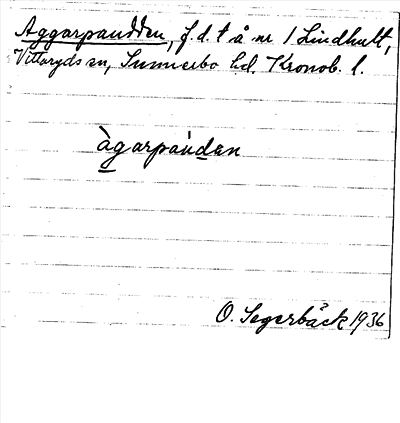 Aggarpaudden, f.d. t å nr 1 Lindhult,
Vittaryds sn, Sunnerbo hd. Kronob. l.
àgarpáuden
O. Segerbäck 1936